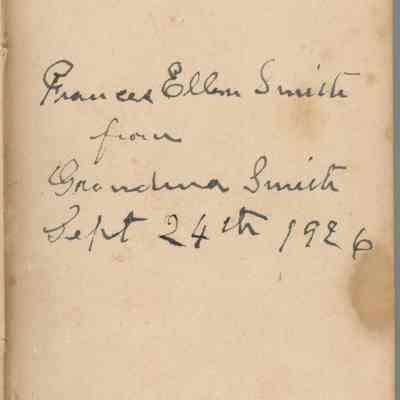 Frances Ellen Smith
from
Grandma Smith
Sept 24th 1926